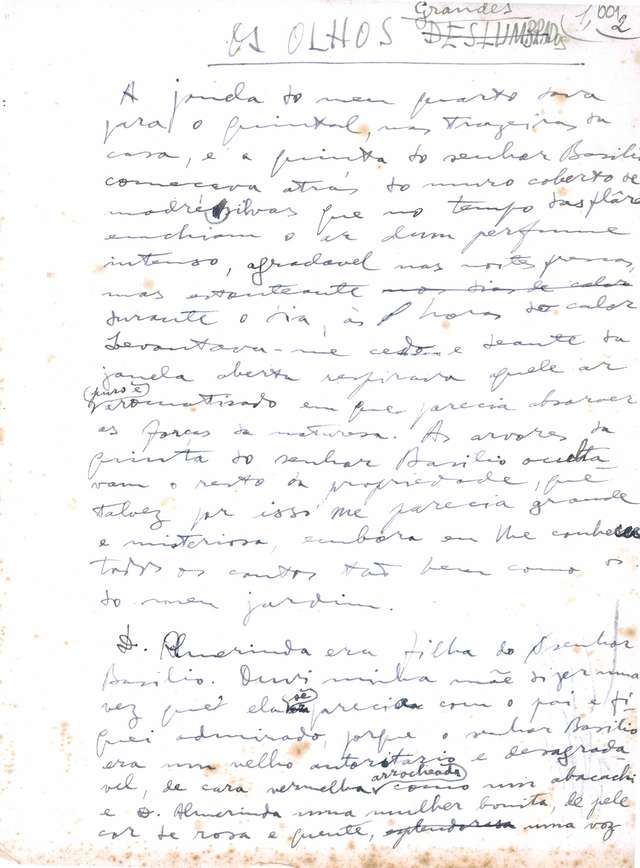 Grandes
OS OLHOS DESLUMBRADOS
1, 001 2
A janela do meu quarto dava
para o quintal, nas trazeiras da
casa, e a quinta do senhor Basilio
começava atrás do muro coberto de
madresilvas que no tempo das flôres
enchiam o ar dum perfume
intenso, agradavel nas noites frescas,
mas estonteante nos dias de calor
durante o dia, às horas do calor
Levantava-me cedo e deante da
janela aberta respirava aquele ar
puro e
aromatisado em que parecia absorver
as forças da naturesa. As arvores da
quinta do senhor Basilio oculta-
vam o resto da propriedade, que
talvez por isso me parecia grande
e misteriosa, embora eu lhe conhecesse
todos os cantos tão bem como os
do meu jardim.
D. Almerinda era filha do senhor
Basilio. Ouvi minha mãe dizer uma
vez que ela se parecia com o pai e fi-
quei admirado, porque o senhor Basilio
era um velho autoritario e desagrada
vel, de cara vermelha arrocheada como um abacachi
e D. Almerinda uma mulher bonita, de pele
cor de rosa e quente, esplendorosa uma voz